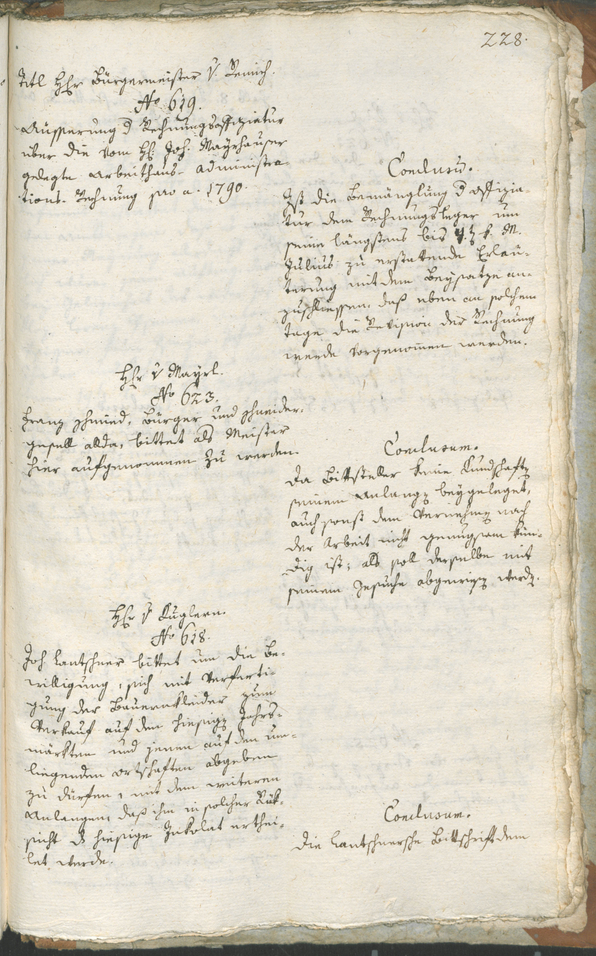 228.
Titl Hhr Bürgermeister v. Remich.
No 619.
Äusserung d Rechnungsoffiziatur
über die vom H. Joh. Mayrhauser
gelegte Arbeithaus administra-
tions-Rechnung pro a. 1790
Conclusum.
Ist die Bemänglung d Offizia-
tur dem Rechnungsleger um
seine längstens bis k. M.
Julius zu erstattende Erläu-
terung mit dem Beysatze an-
zuschliessen, daß eben an solchem
tage die Revision der Rechnung
werde vorgenomen werden.
Hhr v Mayrl.
No 623.
Franz Schmied, Bürger und Schneider-
gesell allda, bittet als Meister
hier aufgenommen zu werden.
Conclusum.
Da Bittsteller keine Kundschaften
seinem Anlangen beygeleget,
auch sonst dem Vernehmen nach
der Arbeit nicht genugsam kün-
dig ist; als soll derselbe mit
seinem Gesuche abgewiesen werden.
Hhr v Kuglern.
No 618.
Joh Lantschner bittet um die Be-
willigung, sich mit Verferti-
gung der Bauernkleider zum
Verkauf auf den hiesigen Jahrs-
märkten und jenen auf den um-
liegenden Ortschaften abgeben
zu dürfen, mit dem weiteren
Anlangen daß ihm in solcher Rük-
sicht d hiesige Inkolat erthei-
let werde.
Conclusum.
Die Lantschnersche Bittschrift dem